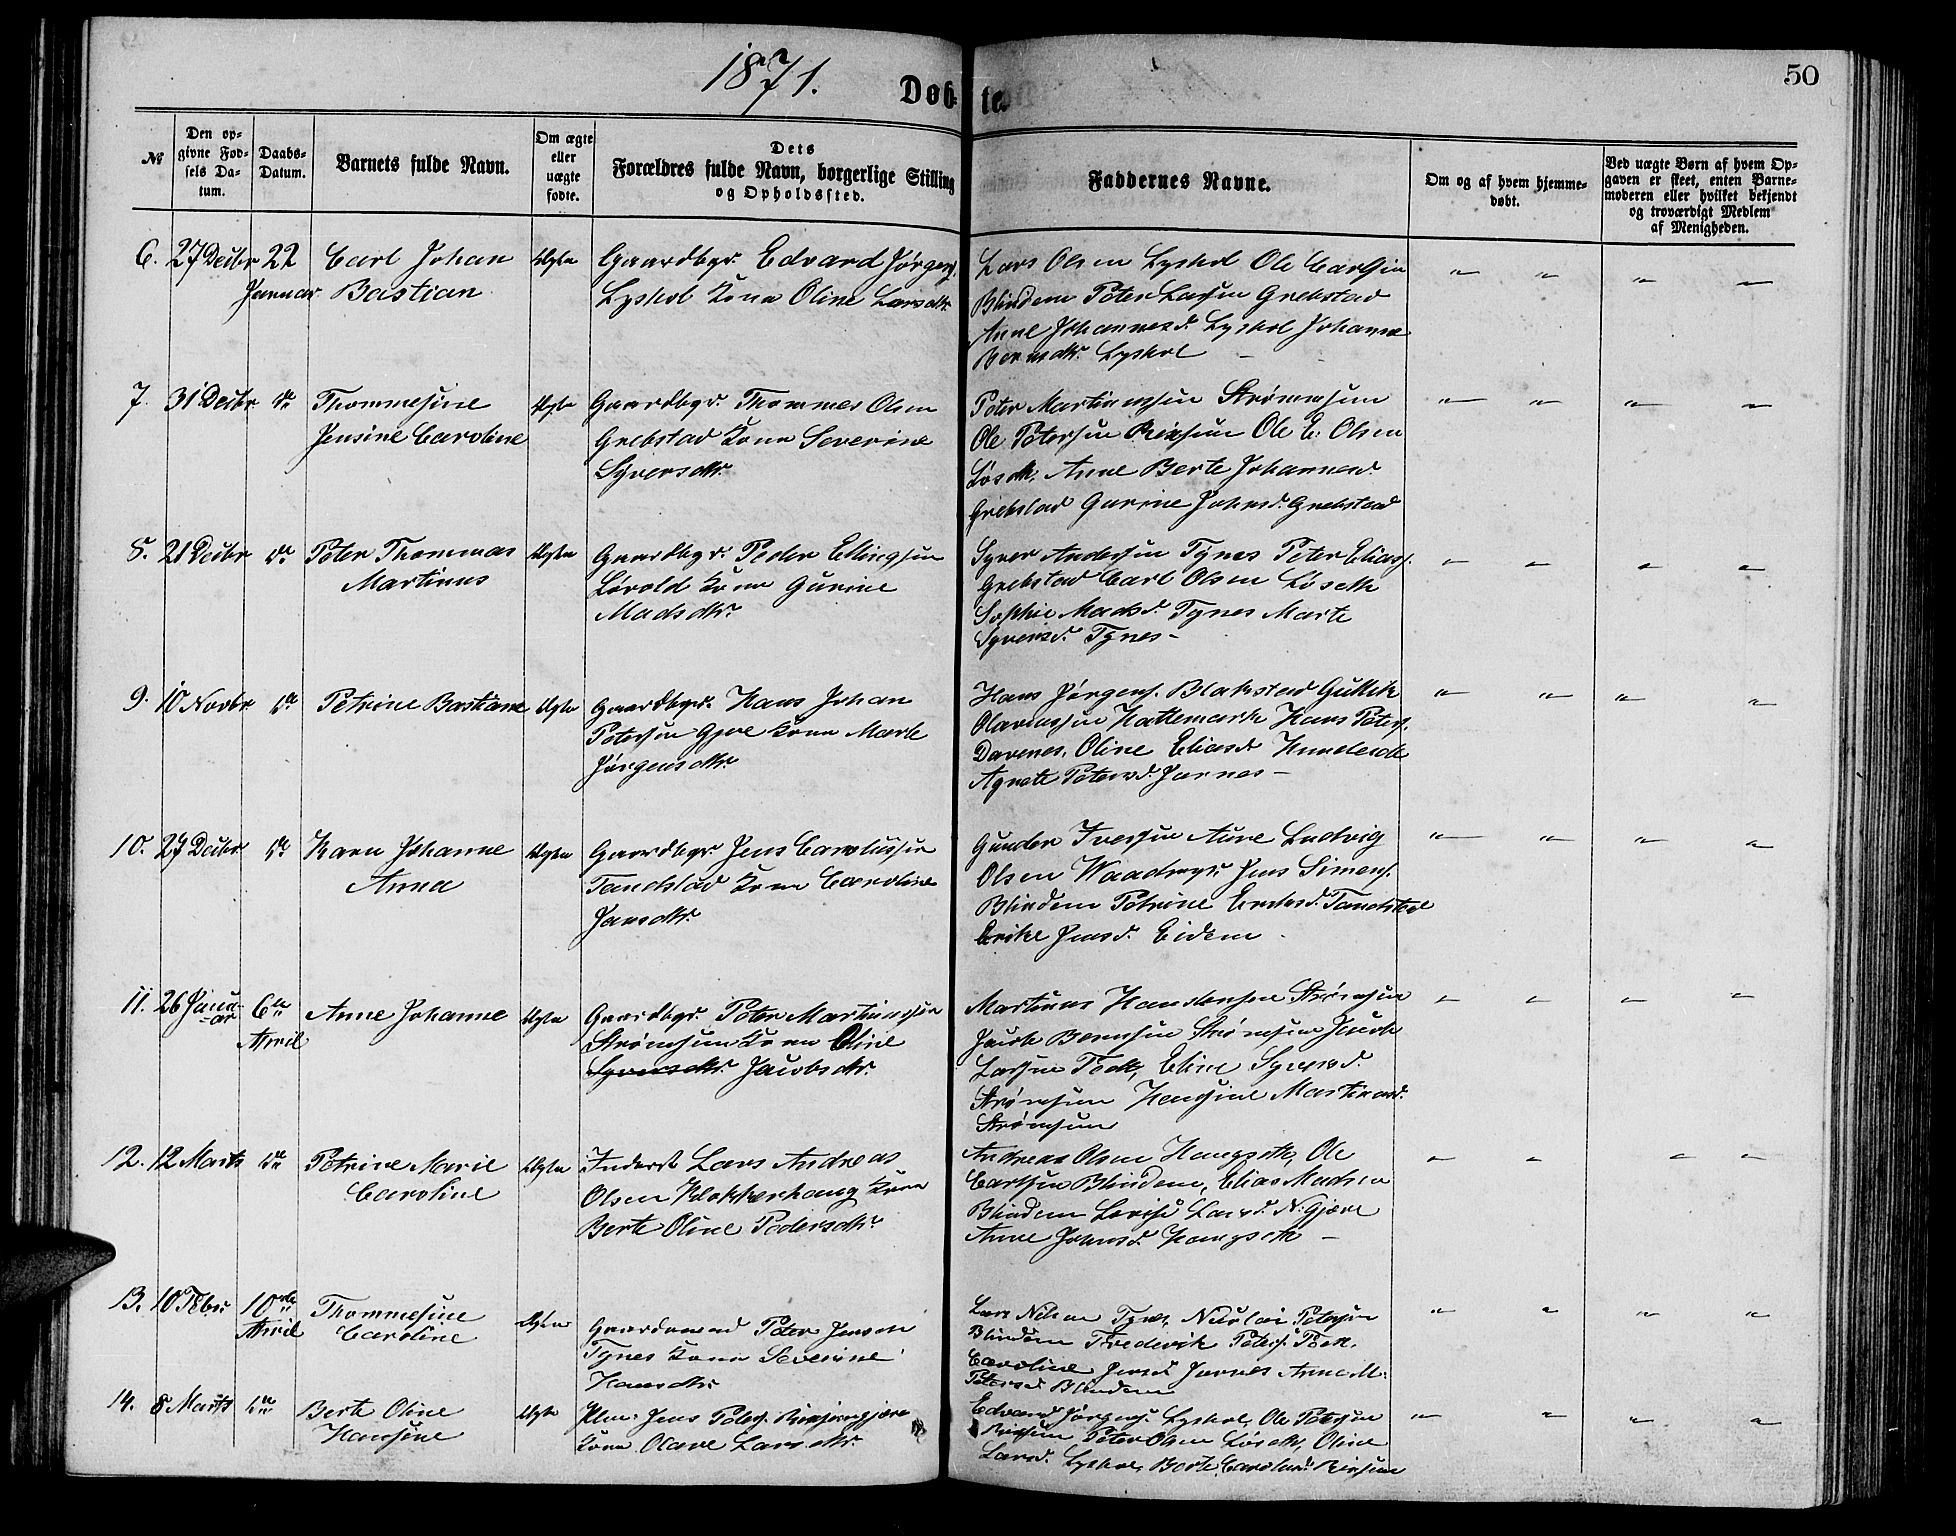 50
1871.
Døbte.
№
Den opgivne Fødsels Datum.
Daabs-Datum.
Barnets fulde Navn.
Om ægte eller uægte fødte.
Dets Forældres fulde Navn, borgerlige Stilling og Opholdssted.
Faddernes Navne.
Om og af hvem hjemmedøbt.
Ved uægte Børn af hvem Opgaven er skeet, enten Barnemoderen eller hvilket bekjendt og troværdigt Medlem af Menigheden.
6. 27 Decbr 22 Januar
Carl Johan
Bastian
Ægte
Gaardbgr. Edvard Jørgens.
Lyshol Kone Oline Larsdtr.
Lars Olsen Lyshol Ole Carlsen
Blindem Peter Larsen Grebstad
Anne Johannesd. Lyshol Johanne
Berndtr. Lyshol
7. 31 Decbr do
Thommesine
Jensine Caroline
Ægte
Gaardbgr. Thommes Olsen
Grebstad Kone Severine
Syversdtr.
Peter Martinussen Strømsun
Ole Petersen Rixsun Ole E. Olsen
Løseth, Anne Berte Johannesd.
Grebstad Gurine Johnsd. Grebstad
8. 21 Decbr do
Peter Thommas
Martinus
Ægte
Gaardbgr. Peder Ellingsen
Løvold Kone Gurine
Madsdtr.
Syver Andersen Tynes Peter Eliass.
Grebstad Carl Olsen Løseth
Sophie Madsd. Tynes Marte
Syversd. Tynes -
9. 10 Novbr do
Petrine Bastiane
Ægte
Gaardbgr. Hans Johan
Petersen Gjere Kone Marte
Jørgensdtr.
Hans Jørgens. Blakstad Gullik
Olavussen Hattemark Hans Peters.
Davenes, Oline Eliasd.
Agnete Petersd. Jarnes -
10. 27 Decbr do
Karn Johanne
Anna
Ægte
Gaardbgr. Jens Carolussen
Tandstad Kone Caroline
Jansdtr.
Gunder Iversen Aure Ludvig
Olsen Jens Simens.
Blindem Petrine Tandstad
Erike Jensd. Eidem -
11. 26 Januar 6te April
Anne Johanne
Ægte
Gaardbgr. Peter Martinussen
Strømsun Kone Oline
Syversdtr. Jacobsdtr.
Martinus Strømsun
Jacob Bernsen Strømsun Jacob
Larsen Toth, Eline Syversd.
Strømsun Hansine Martinusd.
Strømsun
12. 12 Marts do
Petrine Marie
Caroline
Ægte
Inderst Lars Andreas
Olsen Klokkerhaug Kone
Berte Oline Pedersdtr.
Andreas Olsen Haugseth, Ole
Carlsen Blindem, Elias Madsen
Blindem Lovise Larsd. N. Gjære
Anne Johnsd. Haugseth -
13. 10 Febr. 10de April
Thommesine
Caroline
Ægte
Gaardmand Peter Jensen
Tynes Kone Severine
Hansdtr.
Lars Nilsen Tynes, Nicolai Petersen
Blindem Frederik Peters. Toth.
Caroline Jensd. Jarnes Anne M.
Petersd. Blindem
14. 8 Marts do
Berte Oline
Hansine
Ægte
Jens Peters.
Kone Olave Larsdtr.
Edvard Jørgens. Lyshol, Ole Petersen
Rixsun Peter Olsen Løseth, Oline
Larsd. Lyshol, Berte Carolusd. Rixsun